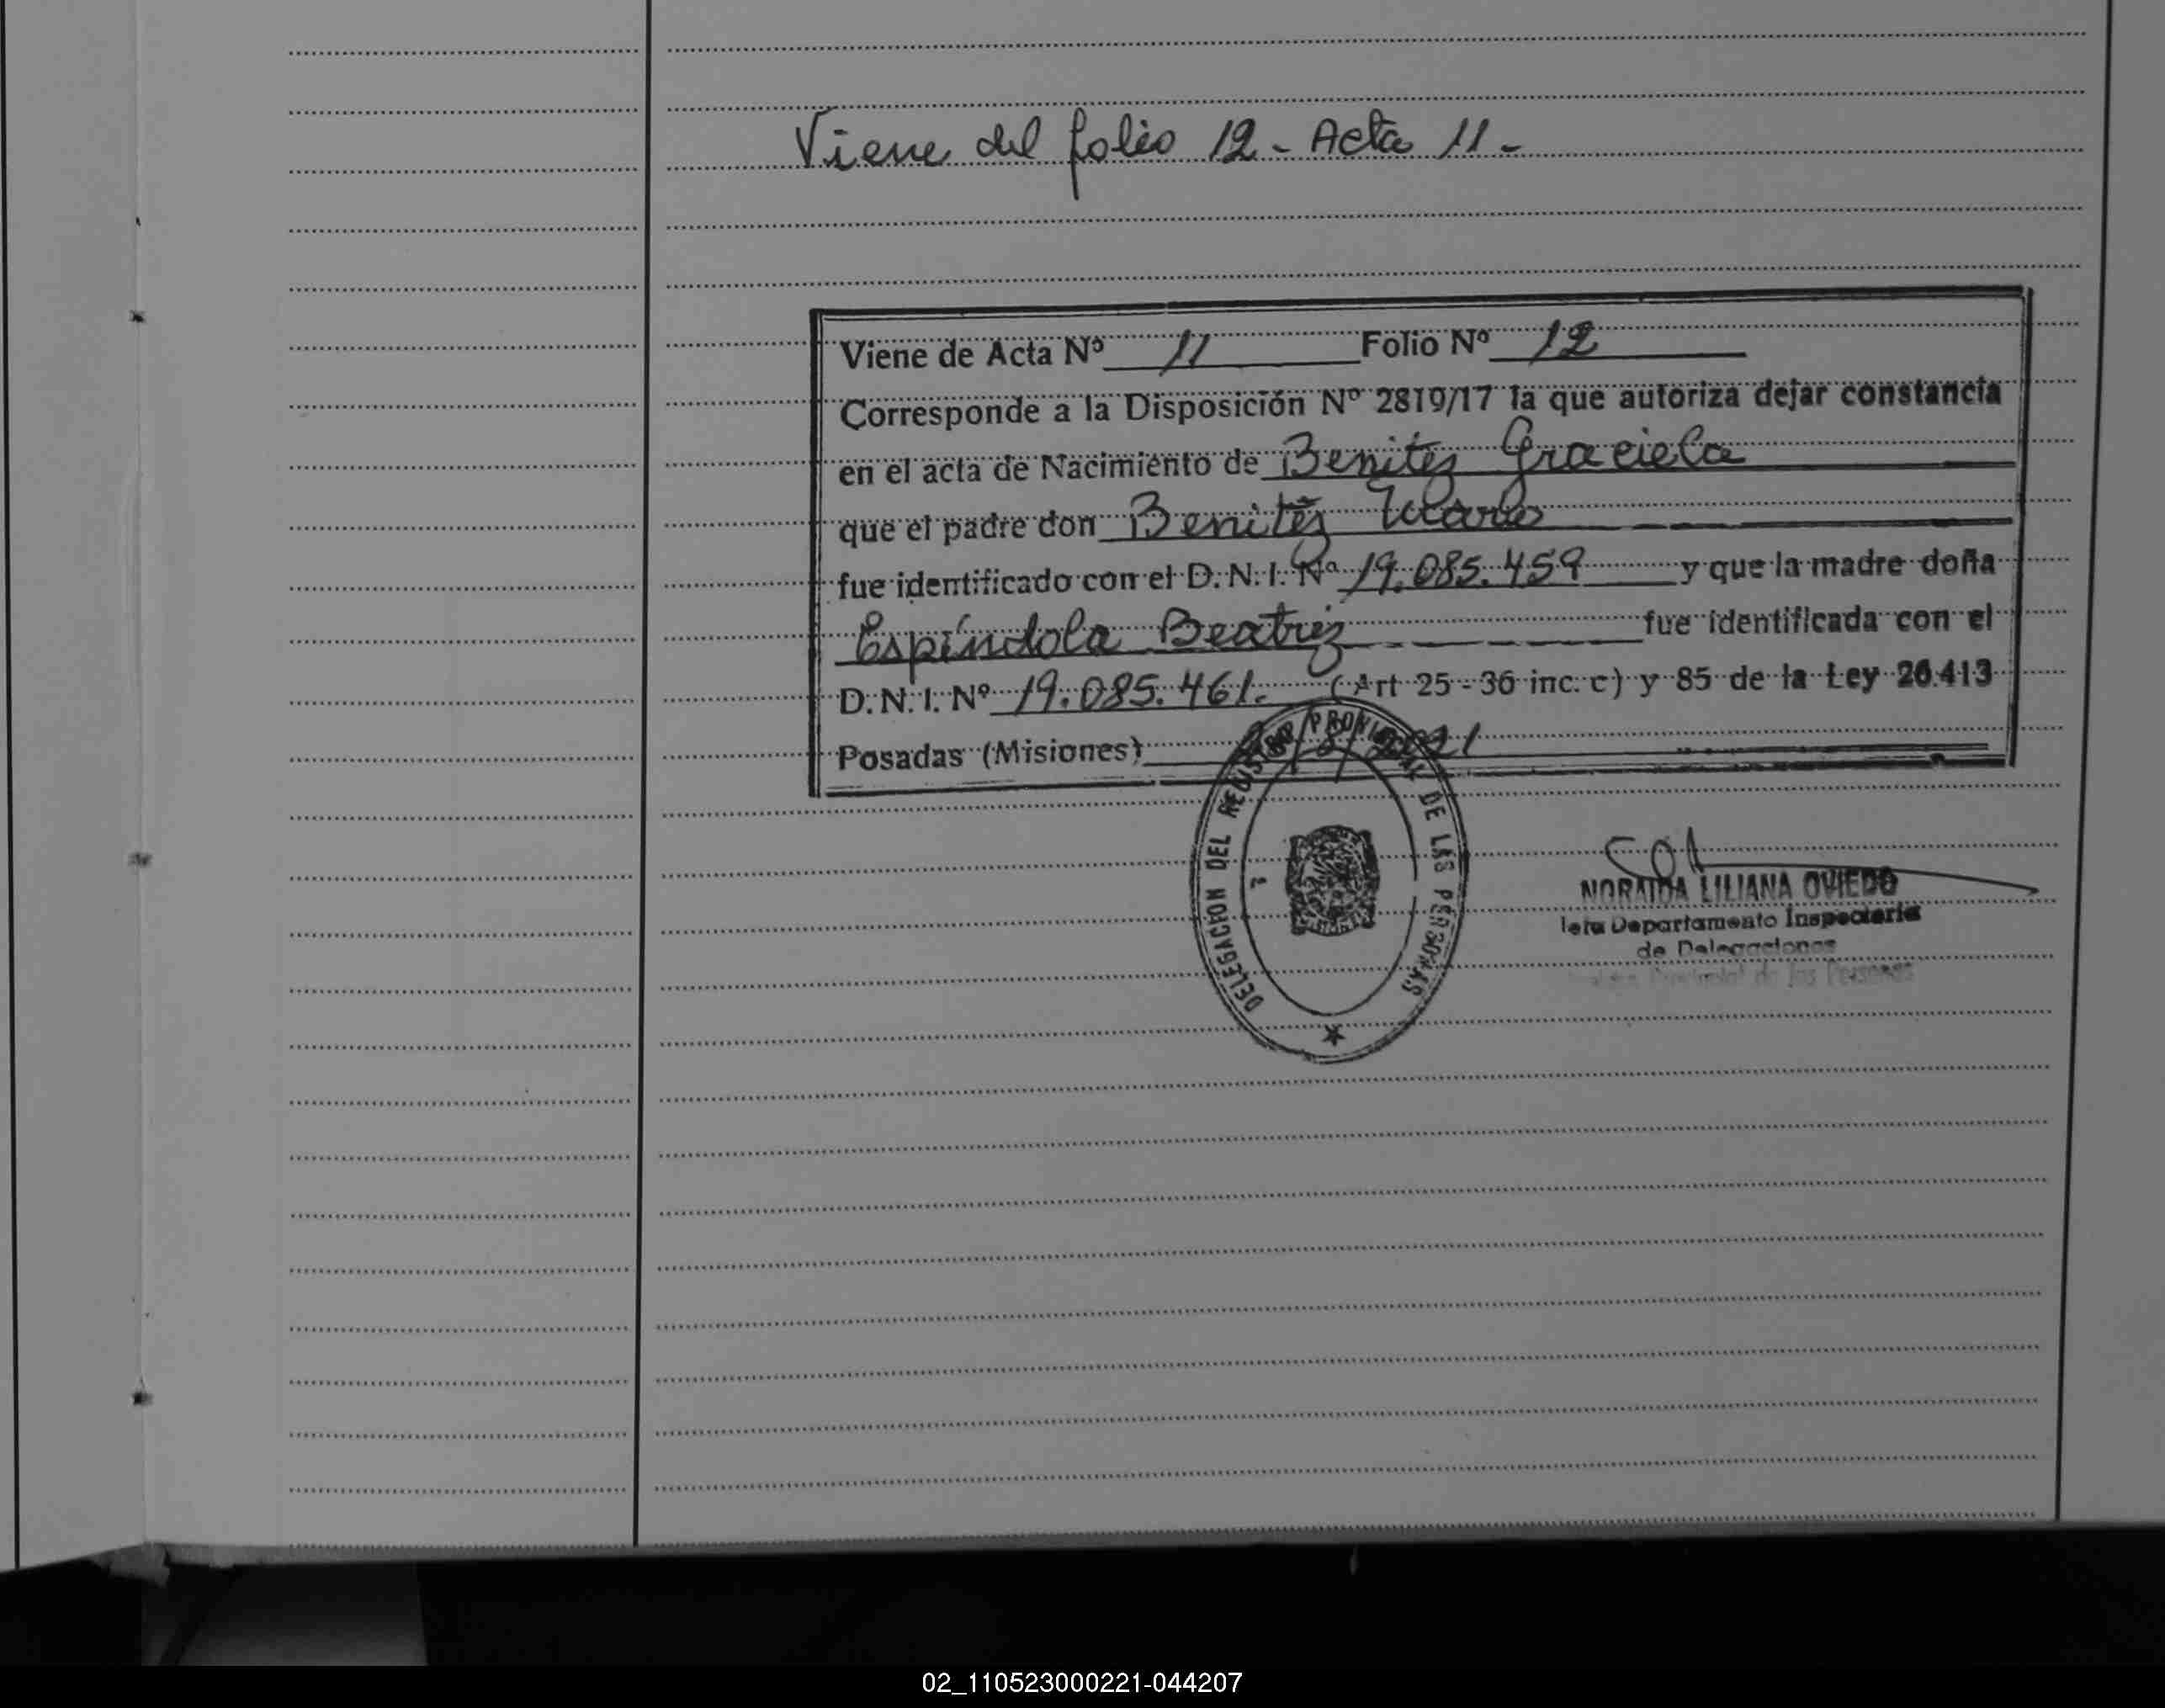 Viene del folio 12 - Acta 11 -
Viene de Acta Nº 11 Folio Nº 12
Corresponde a la Disposición Nº 2819/17 la que autoriza dejar constancia
en el acta de Nacimiento de Benitez Graciela
que el padre don Benitez
fue identificado con el D. N. I. Nº 19.085.459 y que la madre doña
Espíndola Beatriz fue identificada con el
D. N. I. Nº 19.085.461. (Art 25 - 36 inc. c) y 85 de la Ley 26.413
Posadas (Misiones)
DELEGACION DEL REGISTRO PROVINCIAL DE LAS PERSONAS
NORAIDA LILIANA OVIEDO
Departamento Inspectoría
de Delegaciones
Provincial de las Personas
02_110523000221-044207